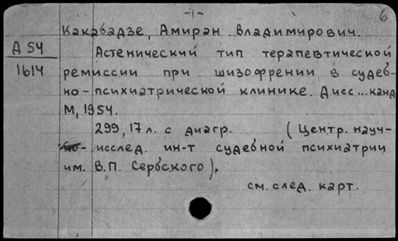 -1- 6
Какабадзе, Амиран Владимирович.
Д 54 Астенический тип терапевтической
1614 ремиссии при шизофрении в судеб-
но-психиатрической клинике. Дисс...канд
М, 1954.
299, 17 л. с диагр. (Центр. науч-
исслед. ин-т судебной психиатрии
им. В.П. Сербского).
см. след. карт.